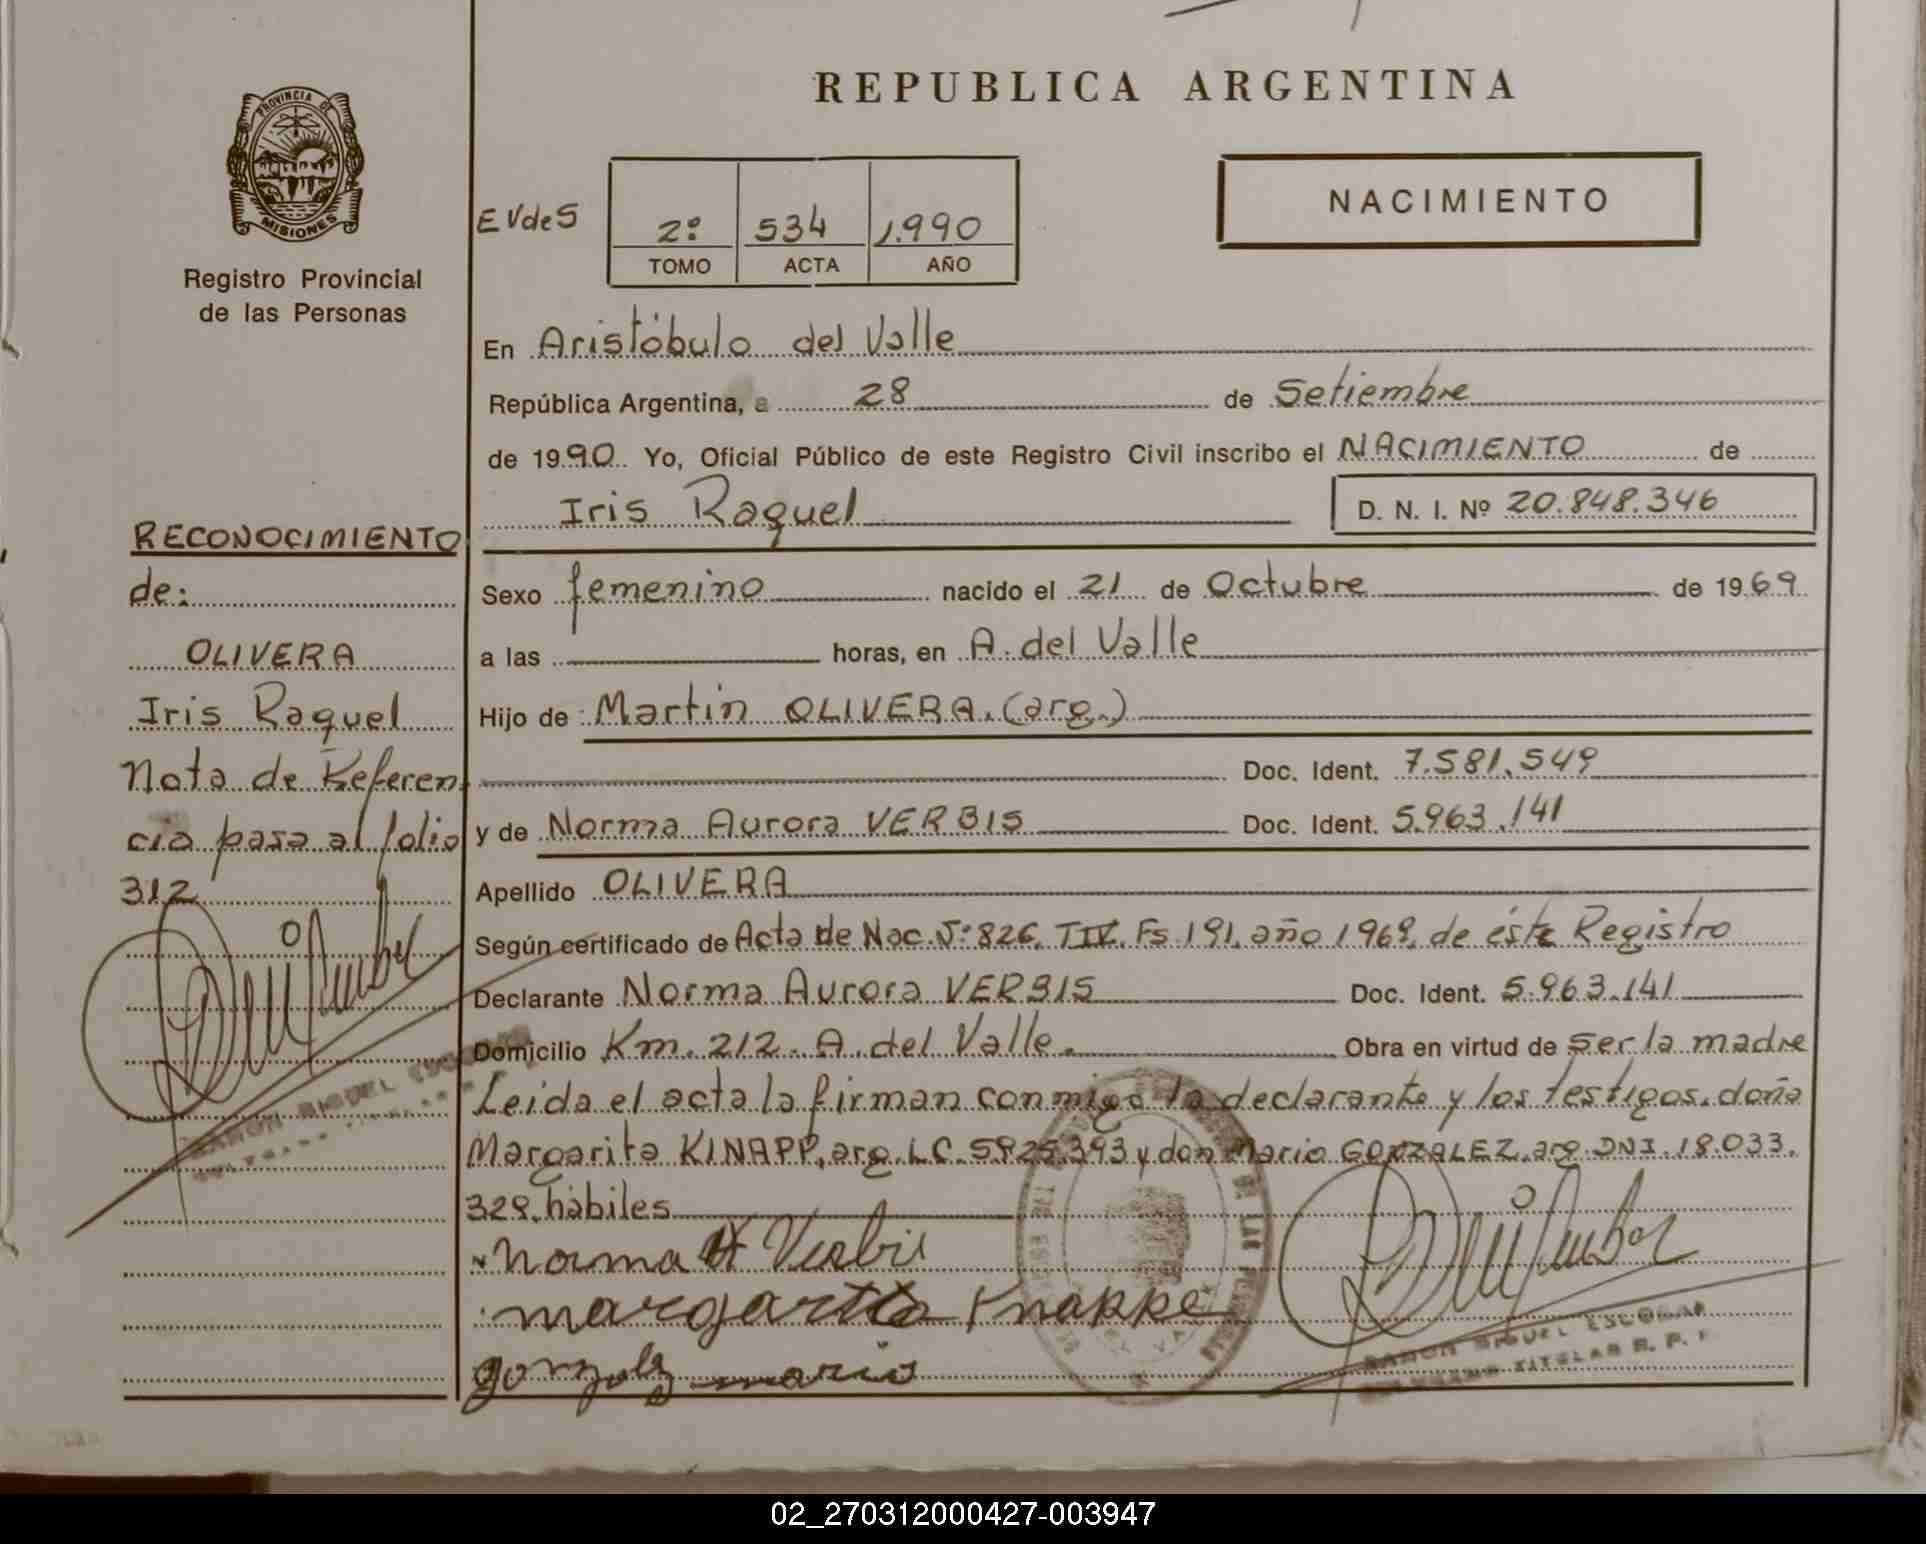 REPUBLICA ARGENTINA
PROVINCIA DE
MISIONES
Registro Provincial
de las Personas
EVdeS
2º 534 1.990
TOMO ACTA AÑO
NACIMIENTO
En Aristóbulo del Valle
República Argentina, a 28 de Setiembre
de 1990. Yo, Oficial Público de este Registro Civil inscribo el NACIMIENTO de
Iris Raquel D. N. I. Nº 20.848.346
Sexo femenino nacido el 21 de Octubre de 1969
a las horas, en A. del Valle
Hijo de Martin OLIVERA. (arg.)
Doc. Ident. 7.581.549
y de Norma Aurora VERBIS Doc. Ident. 5.963.141
Apellido OLIVERA
Según certificado de Acta de Nac. Nº 826. TIV. Fs 191. año 1969. de éste Registro
Declarante Norma Aurora VERBIS Doc. Ident. 5.963.141
Domicilio Km. 212. A. del Valle. Obra en virtud de ser la madre
Leida el acta la firman conmigo la declarante y los testigos. doña
Margarita KINAPP, arg. LC. 5.925.393 y don Mario GONZALEZ. arg. DNI. 18.033.
329. hábiles
Norma A Verbis
margarita Knappe
gonzalez mario
RAMON MIGUEL ESCOBAR
TITULAR R. P. P.
RECONOCIMIENTO
de:
OLIVERA
Iris Raquel
Nota de Referen
cia pasa al folio
312
RAMON MIGUEL ESCOBAR
02_270312000427-003947